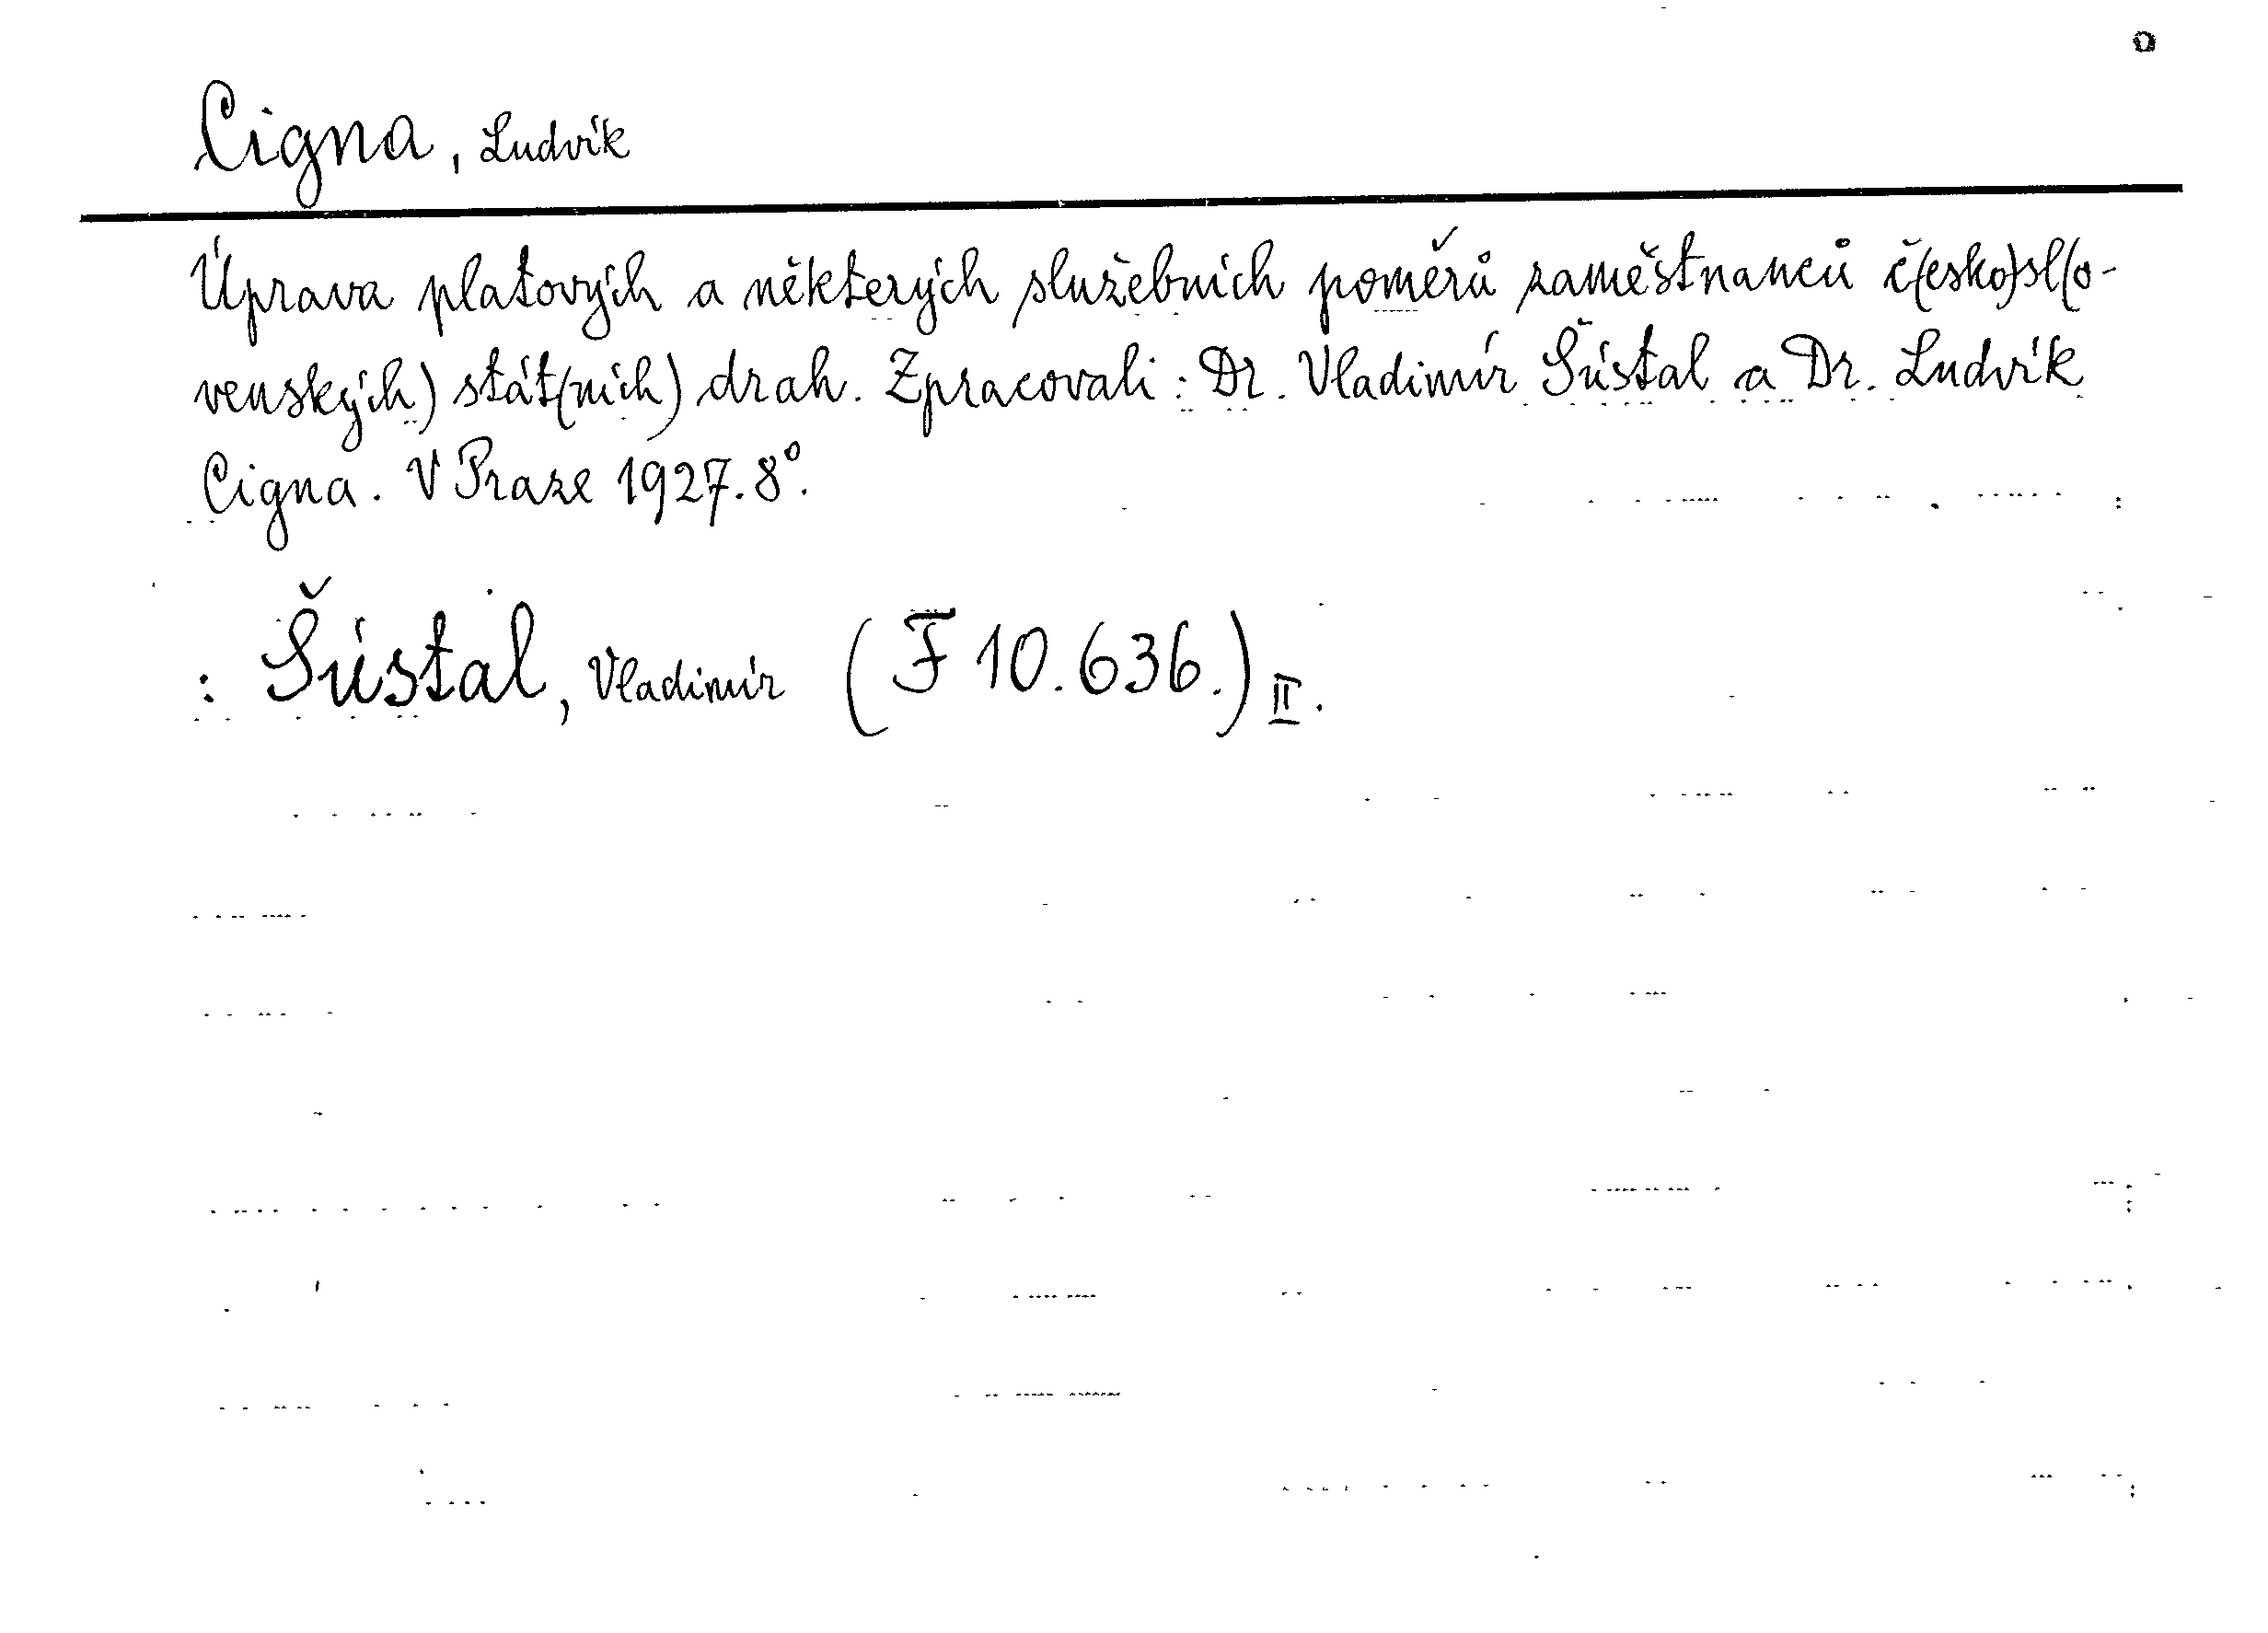 Cigna, Ludvík
Úprava platových a některých služebních poměrů zaměstnanců č(esko)sl(o-
venských) stát(ních) drah. Zpracovali: Dr. Vladimír Šústal a Dr. Ludvík
Cigna. V Praze 1927. 8°.
: Šústal, Vladimír (F 10.636.) II.